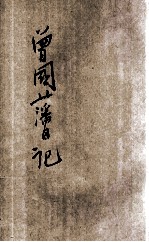 曾國藩日記